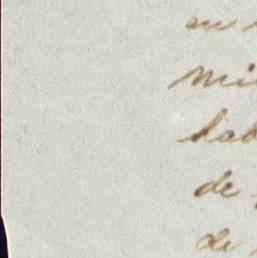 en
mi
hab
de
de